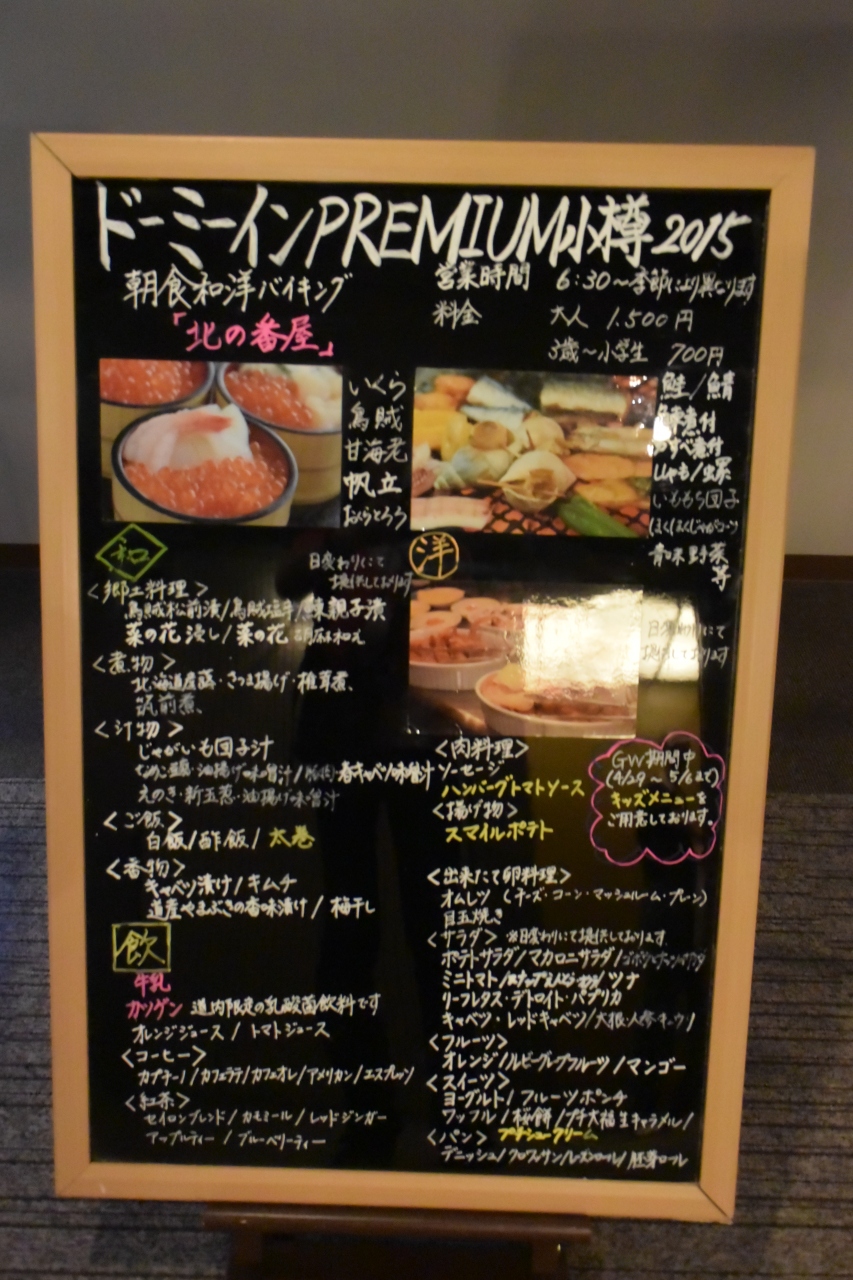 ドーミーインPREMIUM小樽2015
朝食和洋バイキング
「北の番屋」
営業時間 6:30〜季節により異なります
料金 大人 1.500円
3歳〜小学生 700円
いくら
烏賊
甘海老
帆立
おくらとろろ
鮭/鯖
煮付
煮付
ししゃも/
いももち団子
青味野菜
等
和
日変わりにて
提供しております
<郷土料理>
烏賊松前漬/烏賊塩辛/鰊親子漬
菜の花浸し/菜の花胡麻和え
<煮物>
北海道産蕗・さつま揚げ・椎茸煮、
筑前煮、
<汁物>
じゃがいも団子汁
油揚げ味噌汁/豚肉・春キャベツ味噌汁
えのき・新玉葱・油揚げ味噌汁
<ご飯>
白飯/酢飯/太巻
<香物>
キャベツ漬け/キムチ
道産やまぶきの香味漬け/梅干し
飲
牛乳
カツゲン 道内限定の乳酸菌飲料です
オレンジジュース/トマトジュース
<コーヒー>
カプチーノ/カフェラテ/カフェオレ/アメリカン/エスプレッソ
<紅茶>
セイロンブレンド/カモミール/レッドジンガー
アップルティー/ブルーベリーティー
洋
日変わりにて
提供しております
<肉料理>
ソーセージ
ハンバーグトマトソース
<揚げ物>
スマイルポテト
GW期間中
(4/29〜5/6まで)
キッズメニューを
ご用意しております。
<出来たて卵料理>
オムレツ (チーズ・コーン・マッシュルーム・プレーン)
目玉焼き
<サラダ> ※日変わりにて提供しております
ポテトサラダ/マカロニサラダ/
ミニトマト/スナップえんどう/ツナ
リーフレタス・デトロイト・パプリカ
キャベツ・レッドキャベツ/大根・人参・キュウリ
<フルーツ>
オレンジ/ルビーグレープフルーツ/マンゴー
<スイーツ>
ヨーグルト/フルーツポンチ
ワッフル/桜餅/プチ大福生キャラメル/
プチシュークリーム
<パン>
デニッシュ/クロワッサン/レーズンロール/胚芽ロール